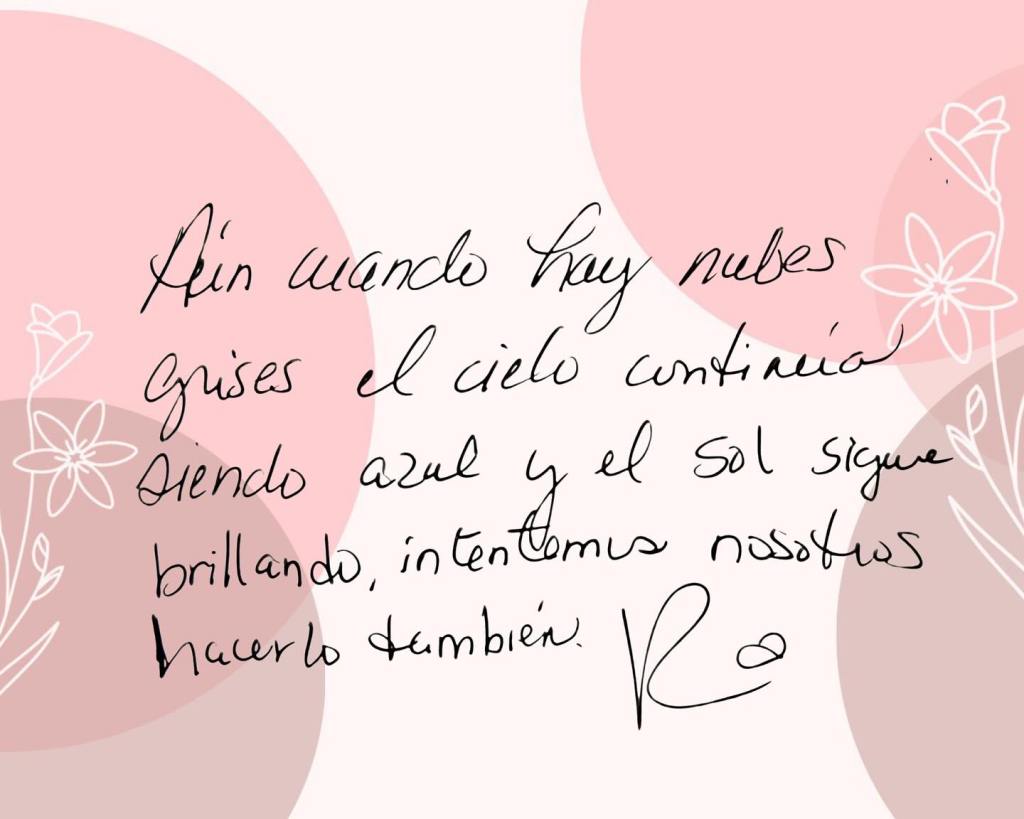 Aún cuando hay nubes
grises el cielo continúa
siendo azul y el sol sigue
brillando, intentemos nosotros
hacerlo también. R